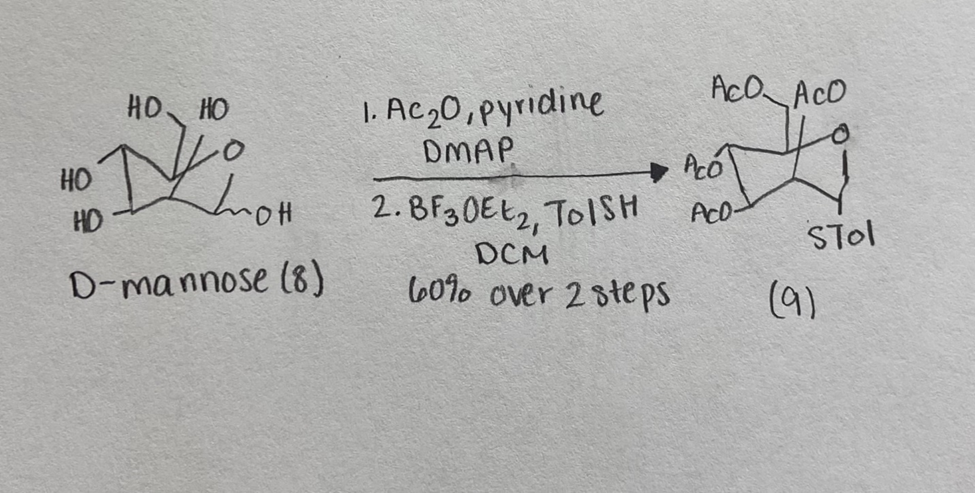 HO HO
O
HO
HO
OH
D-mannose (8)
1. Ac2O, pyridine
DMAP
2. BF3OEt2, TolSH
DCM
60% over 2 steps
AcO AcO
O
AcO
AcO
STol
(9)